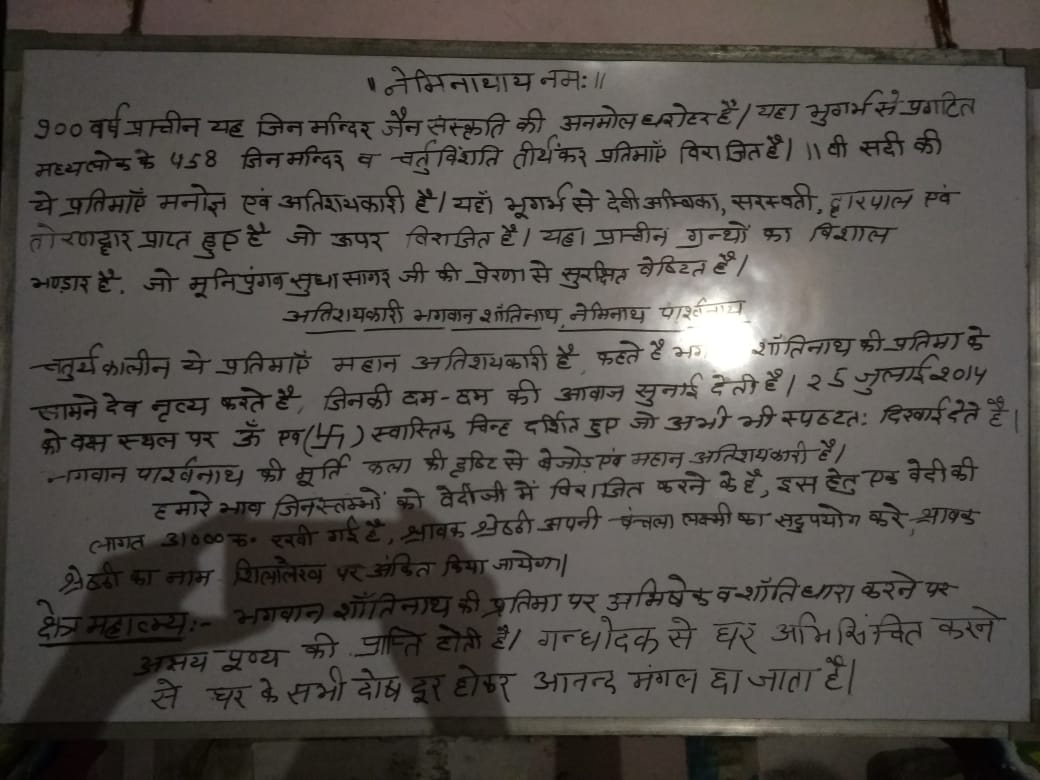 ॥ नेमिनाथाय नमः ॥
900 वर्ष प्राचीन यह जिन मन्दिर जैन संस्कृति की अनमोल धरोहर है। यहा भुगर्भ से प्रगटित
मध्यलोक के 458 जिन मन्दिर व चर्तुविंशति तीर्थकर प्रतिमाएँ विराजित है। 11 वी सदी की
ये प्रतिमाएँ मनोज्ञ एवं अतिशयकारी है। यहाँ भूगर्भ से देवी अम्बिका, सरस्वती, द्वारपाल एवं
तोरणद्वार प्राप्त हुए है जो ऊपर विराजित है। यहा प्राचीन ग्रन्थों का विशाल
भण्डार है, जो मूनिपुंगव सुधासागर जी की प्रेरणा से सुरक्षित वेष्टित है।
अतिशयकारी भगवान शाँतिनाथ, नेमिनाथ पार्श्वनाथ
चतुर्थ कालीन ये प्रतिमाएँ महान अतिशयकारी है, कहते है शाँतिनाथ की प्रतिमा के
सामने देव नृत्य करते है, जिनकी छम-छम की आवाज सुनाई देती है। 25 जुलाई 2014
को वक्ष स्थल पर ऊँ एवं (卐) स्वास्तिक चिन्ह दर्शित हुए जो अभी भी स्पष्टतः दिखाई देते है।
भगवान पार्श्वनाथ की मूर्ति कला की दृष्टि से बेजोड़ एवं महान अतिशयकारी है।
हमारे भाव जिनस्तम्भों को वेदीजी में विराजित करने के है, इस हेतु एक वेदी की
लागत 31000 रु. रखी गई है, श्रावक श्रेष्ठी अपनी चंचला लक्ष्मी का सदुपयोग करे, श्रावक
श्रेष्ठी का नाम शिलालेख पर अंकित किया जायेगा।
क्षेत्र महात्म्य:- भगवान शाँतिनाथ की प्रतिमा पर अभिषेक व शाँतिधारा करने पर
अक्षय पूण्य की प्राप्ति होती है। गन्धोदक से घर अभिसिंचित करने
से घर के सभी दोष दूर होकर आनन्द मंगल छा जाता है।